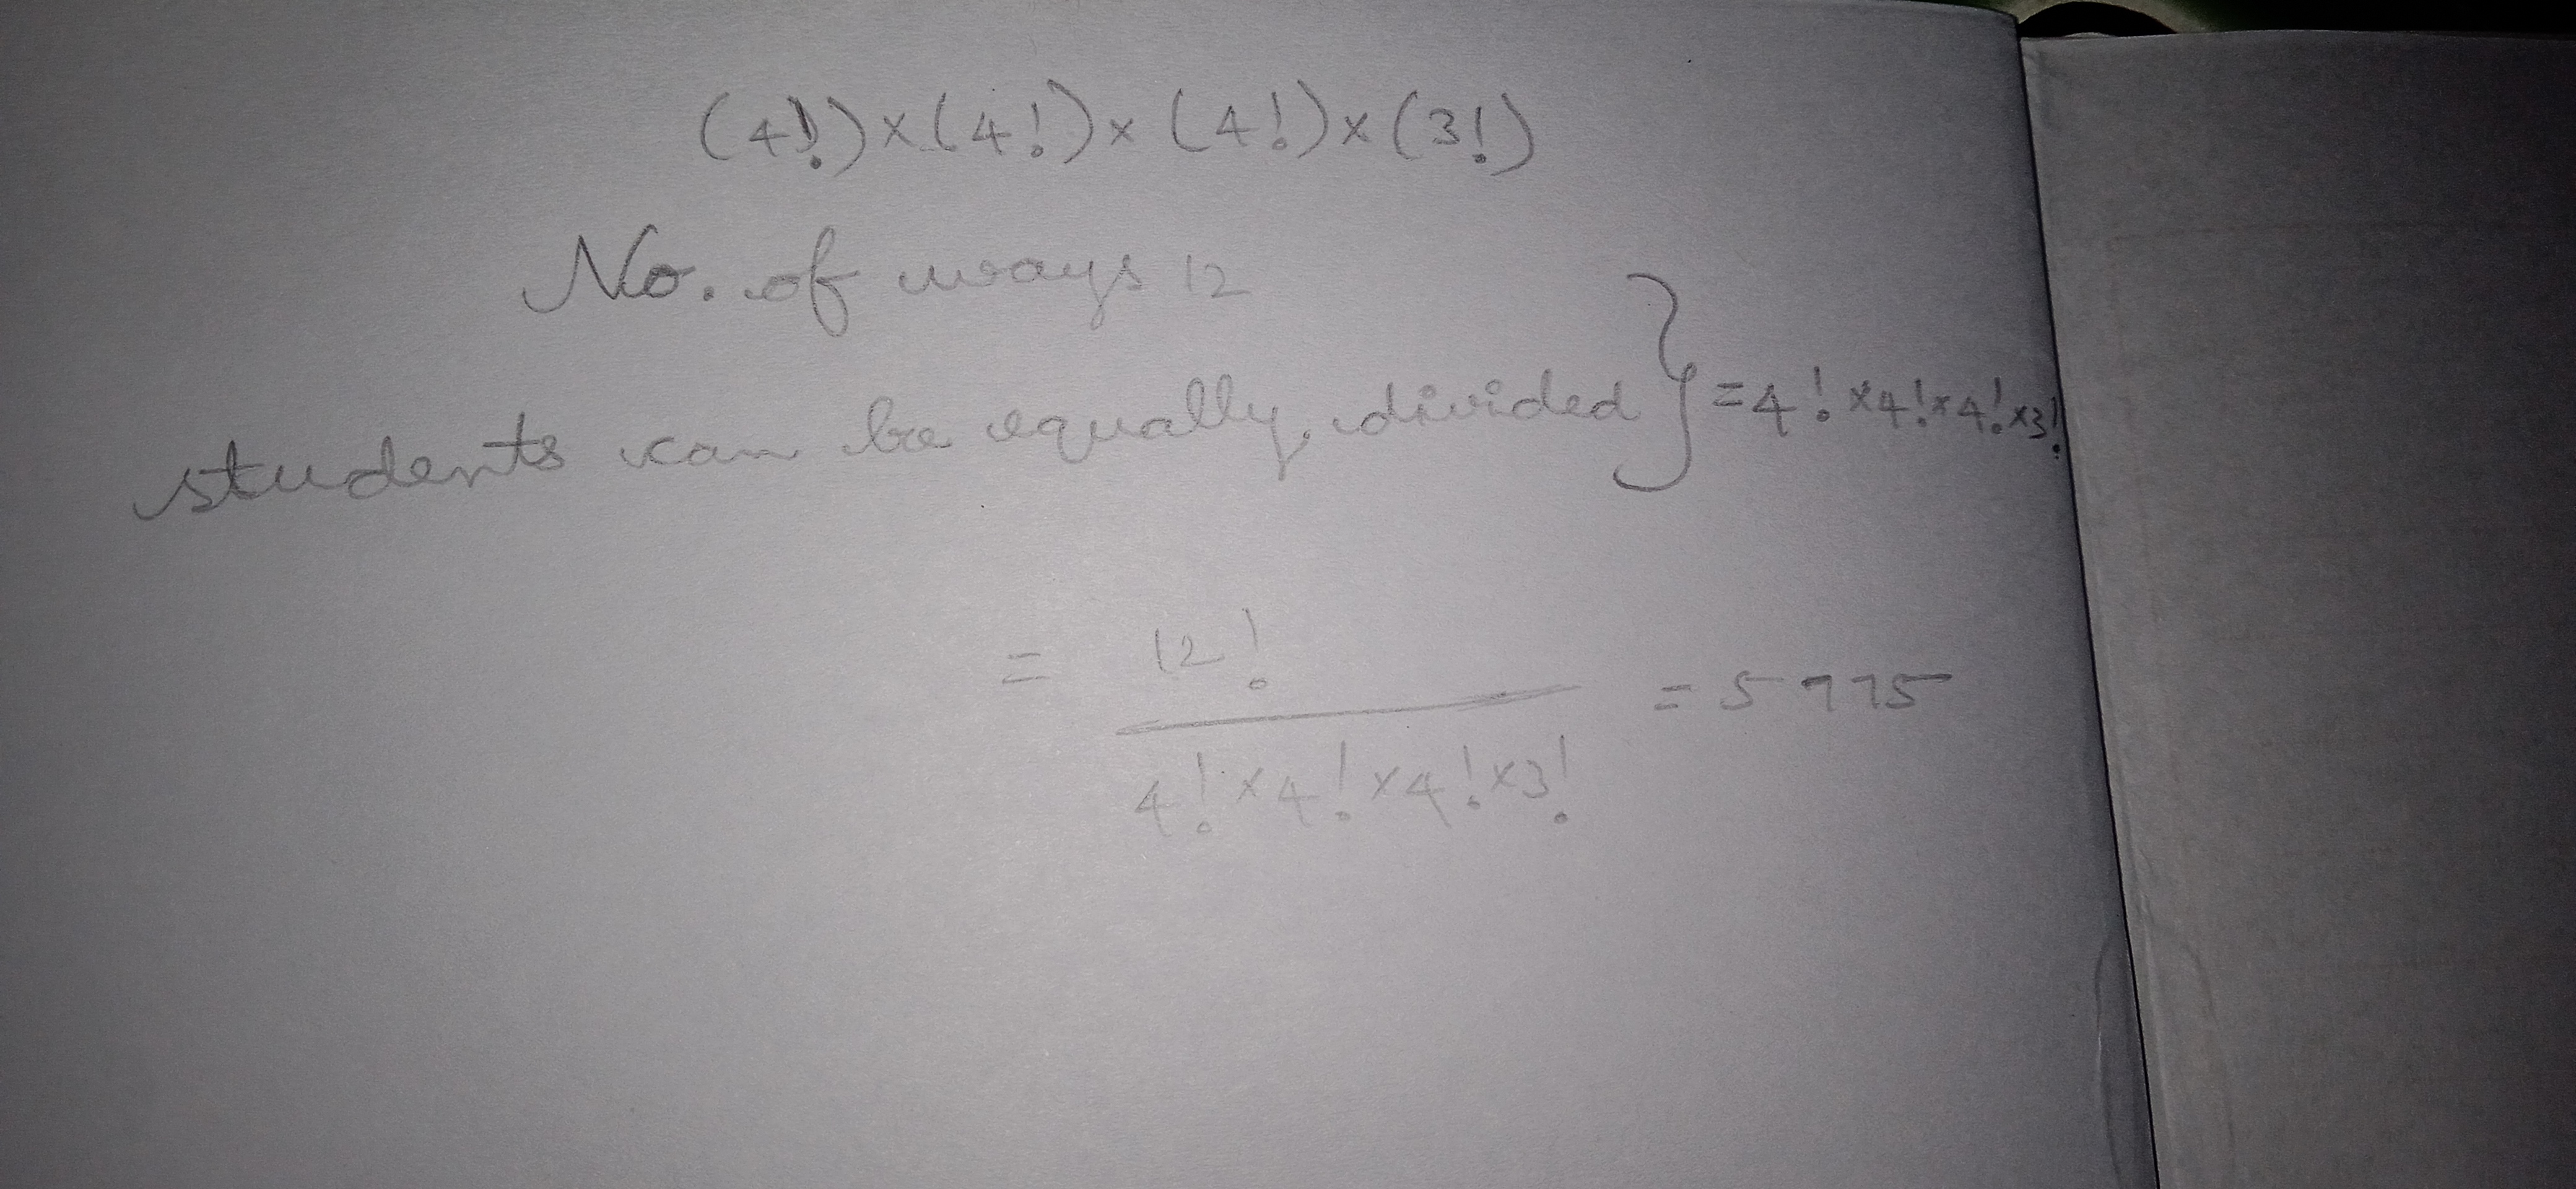 (4!) x (4!) x (4!) x (3!)
No. of ways 12
students can be equally divided } = 4! x 4! x 4! x 3!
= 12! / 4! x 4! x 4! x 3! = 5775